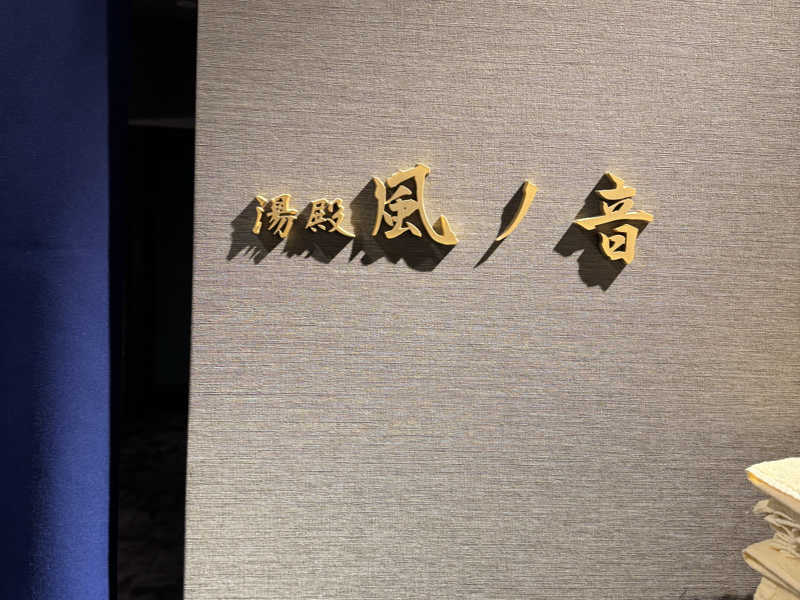 湯殿 風ノ音